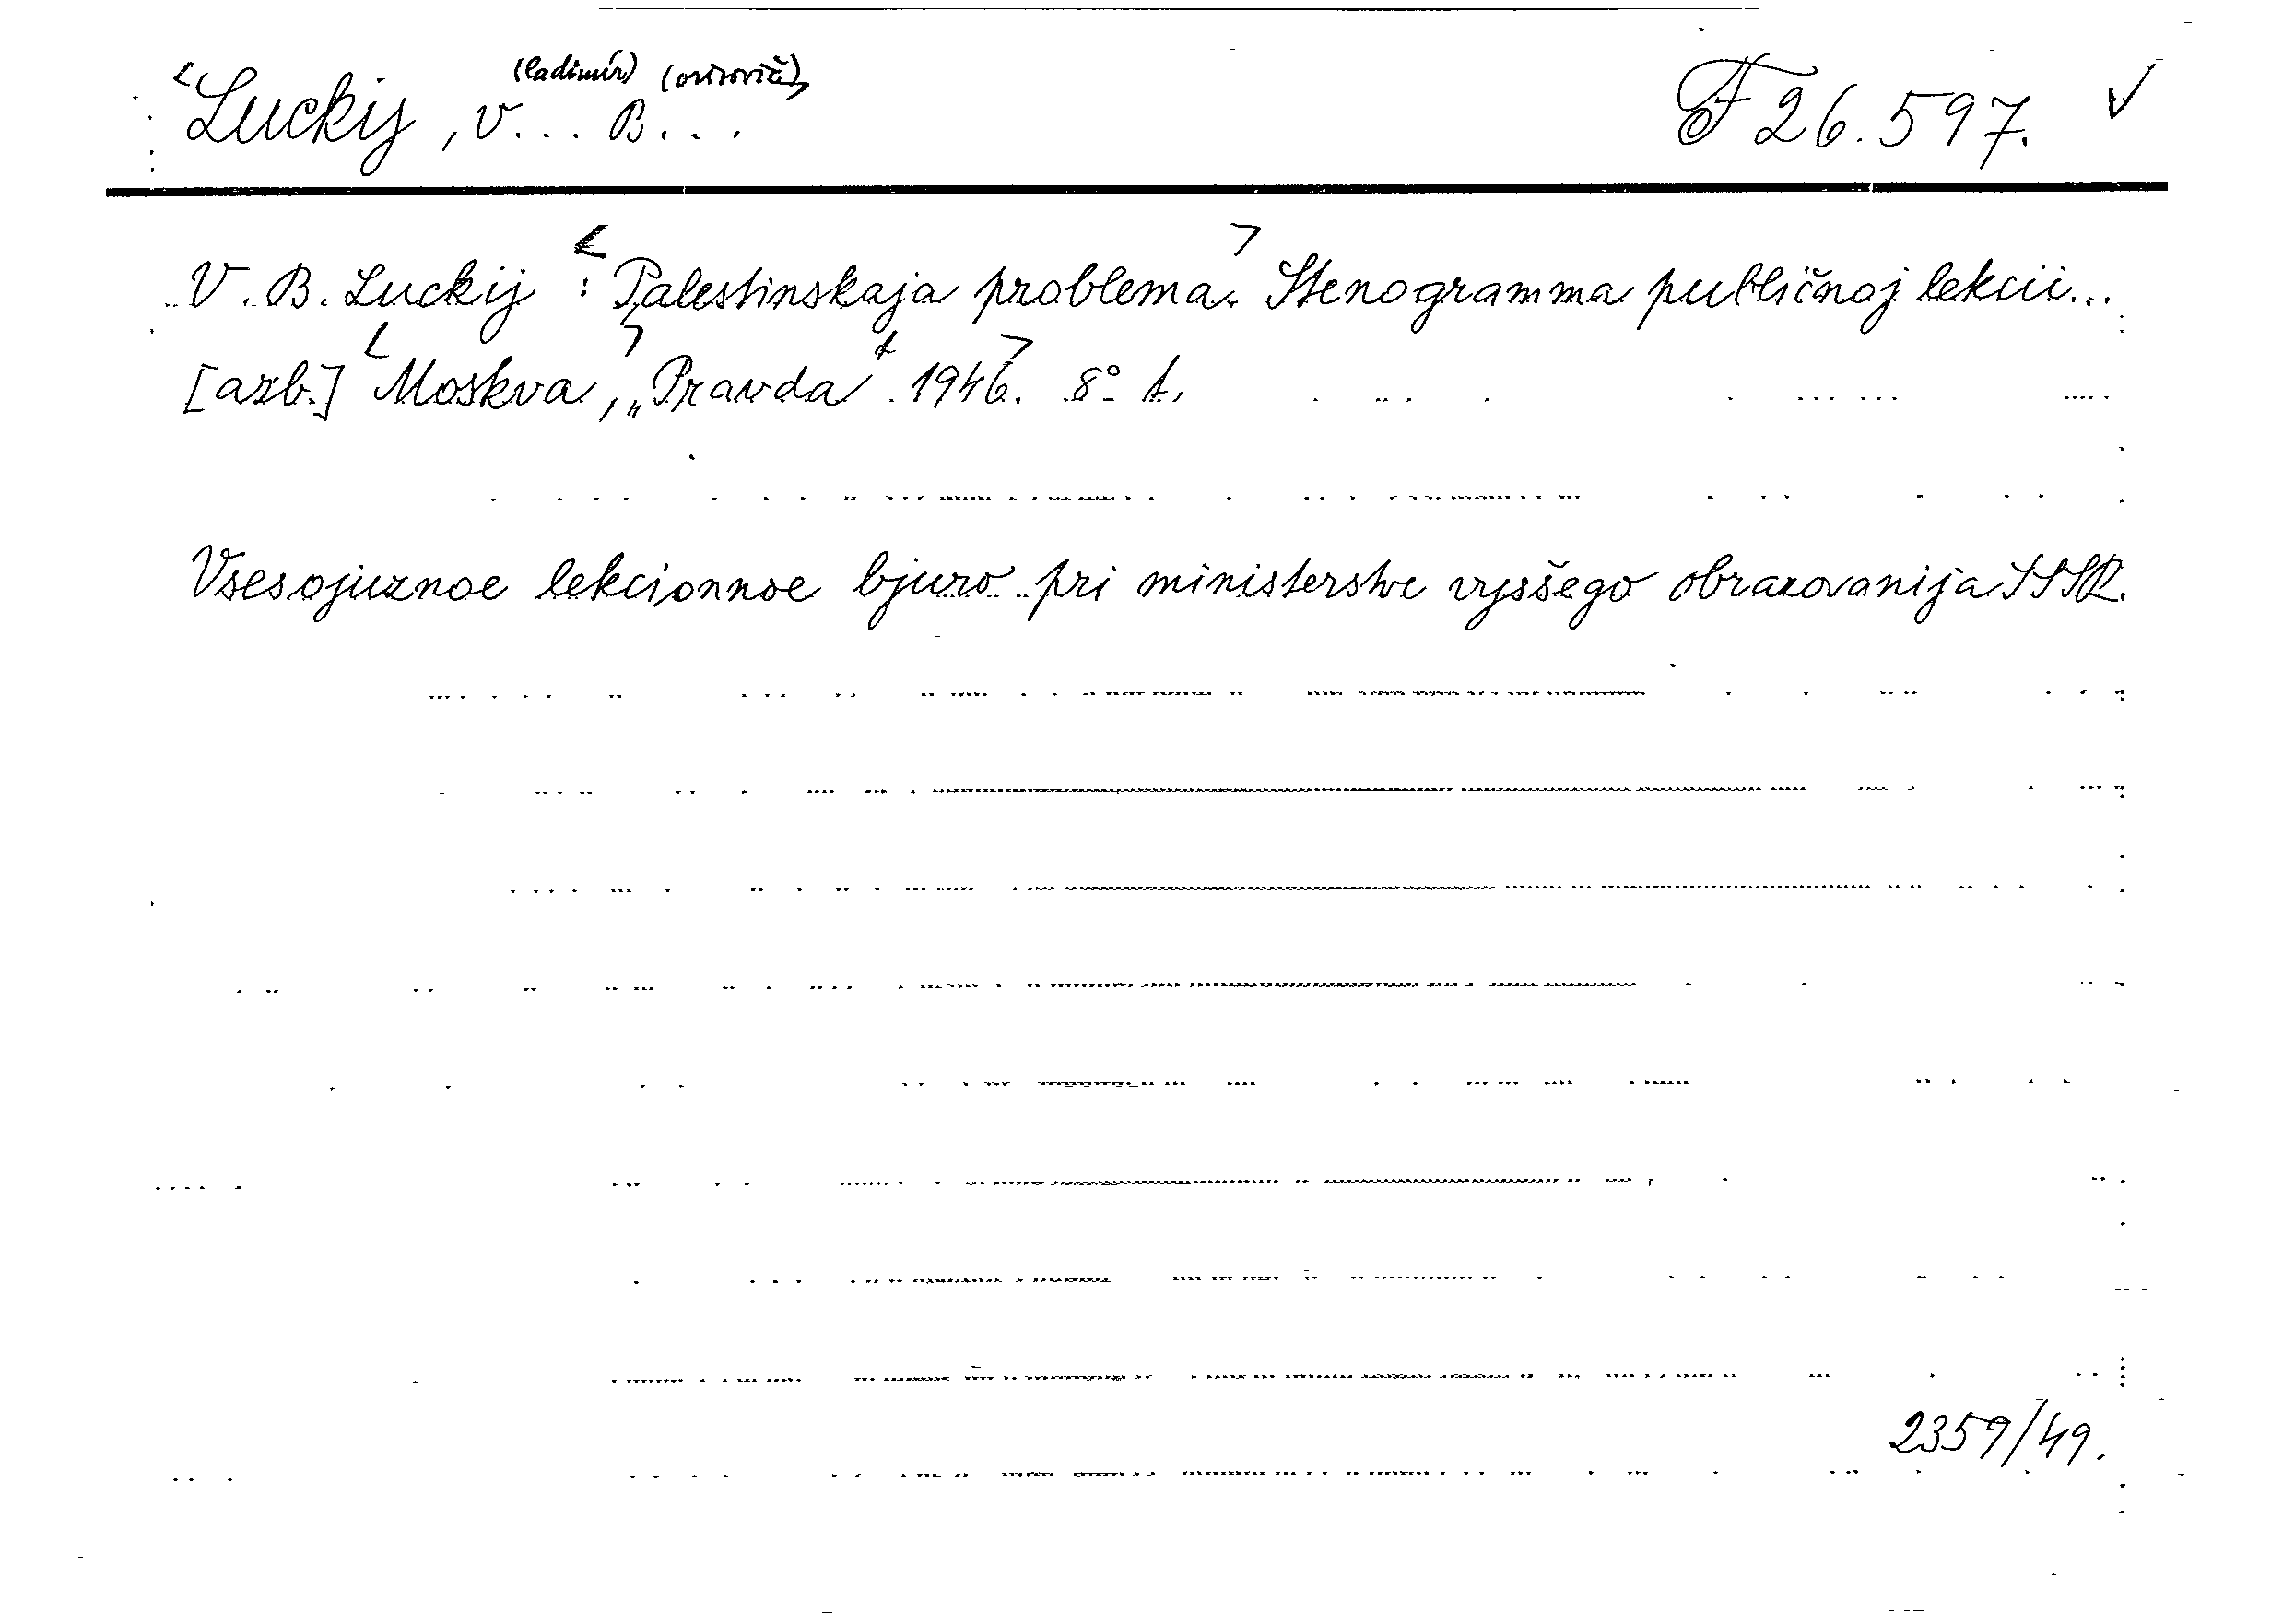 (ladimír) (orisovič)
<Luckij, V... B... F 26.597. ✓
V. B. Luckij : <Palestinskaja problema.> Stenogramma publičnoj lekcii...
[azb.] <Moskva,> „Pravda“ 1946.> 8° A.
Vsesojuznoe lekcionnoe bjuro pri ministerstve vysšego obrazovanija SSSR.
2359/49.